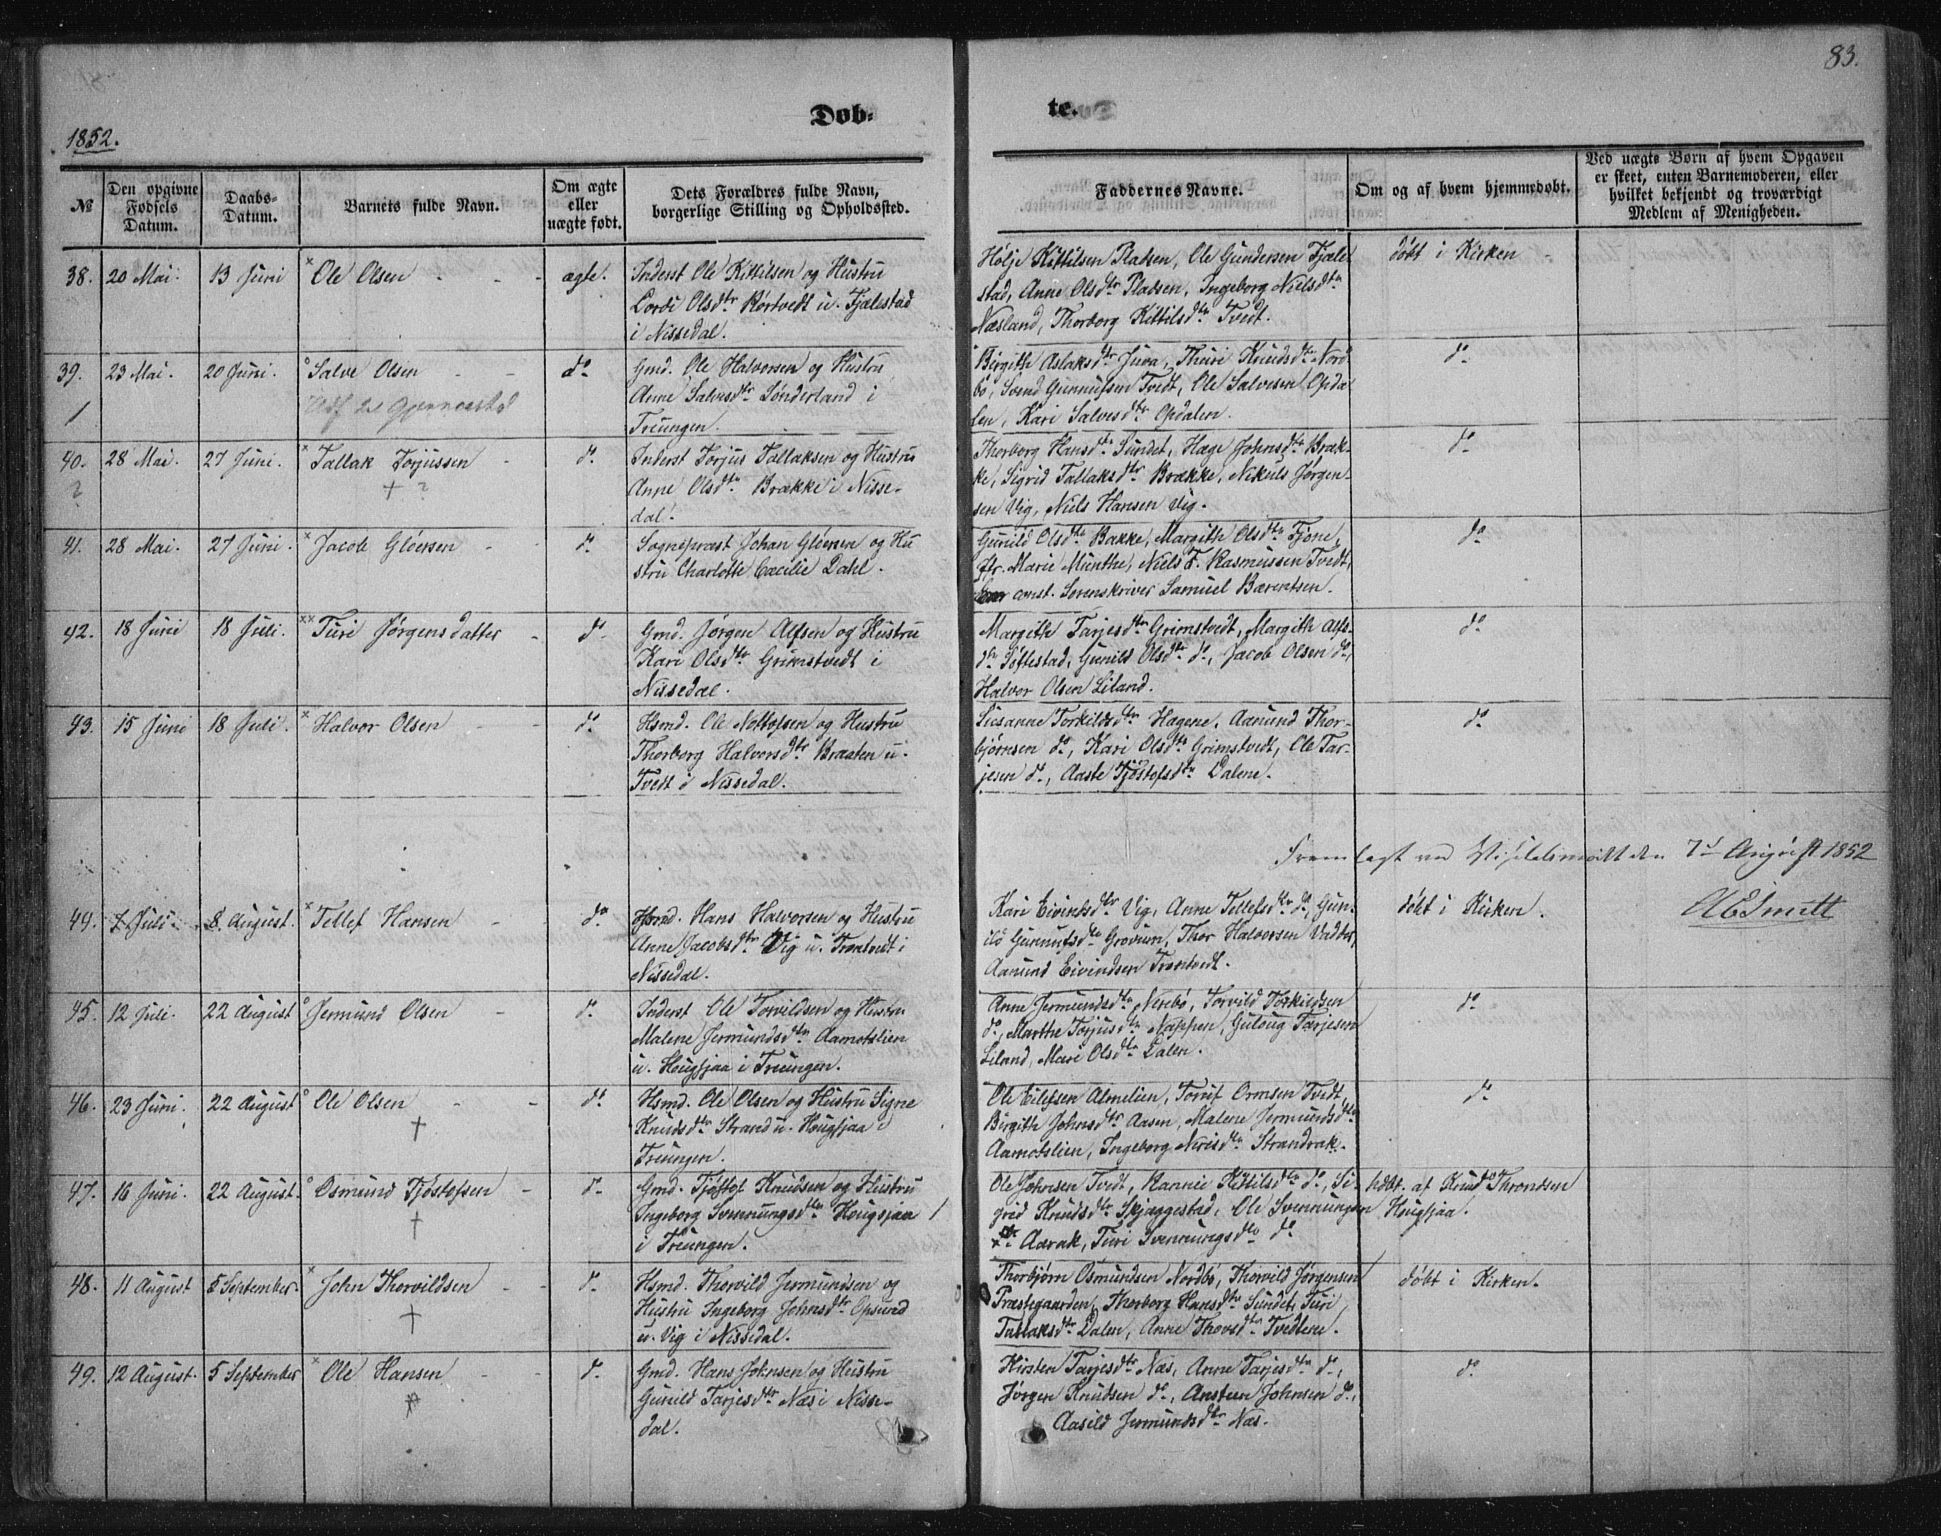 83.
Døb-
te.
1852.
№
Den opgivne Fødsels Datum.
Daabs-Datum.
Barnets fulde Navn.
Om ægte eller uægte født.
Dets Forældres fulde Navn, borgerlige Stilling og Opholdssted.
Faddernes Navne.
Om og af hvem hjemmedøbt.
Ved uægte Børn af hvem Opgaven er skeet, enten Barnemoderen, eller hvilket bekjendt og troværdigt Medlem af Menigheden.
38. 20 Mai. 13 Juni × Ole Olsen - - ægte.
Inderst Ole Kittilsen og Hustru
Lovdi Olsdtr Rørtvedt u. Fjalestad
i Nissedal.
Holje Kittilsen Pladsen, Ole Gundersen Fjale
stad, Anne Olsdtr Pladsen, Ingeborg Nielsdtr
Næsland, Thorborg Kittilsdtr Tvedt.
døbt i Kirken
39. 23 Mai. 20 Juni. ° Salve Olsen - - do
Gmd. Ole Halvorsen og Hustru
Anne Salvesdtr Sønderland i
Treungen.
Birgith Aslaksdtr Juva, Thuri Knudsdtr Nord
bø, Svend Gunnufsen Tvedt, Ole Salvesen Opda
len, Kari Salvesdtr Opdalen.
do
40. 28 Mai. 27 Juni. × Tallak Torjussen - do
? + ?
Inderst Torjus Tallaksen og Hustru
Anne Olsdtr Brække i Nisse-
dal.
Thorborg Hansdtr Sundet, Hæge Johnsdtr Bræk-
ke, Sigrid Tallaksdtr Brække, Nikuls Jørgen-
sen Vig, Niels Hansen Vig.
do
41. 28 Mai. 27 Juni. × Jacob Gløersen - do
Sognepræst Johan Gløersen og Hu
stru Charlotte Cæcilie Dahl.
Gunild Olsdtr Bakke, Margith Olsdtr Fjone,
Fr. Marie Munthe, Niels F. Rasmussen Tvedt,
const. Sorenskriver Samuel Barentsen.
do
42. 18 Juni 18 Juli. ×× Turi Jørgensdatter - do
Gmd. Jørgen Alfsen og Hustru
Kari Olsdtr Grimstvedt i
Nissedal.
Margith Tarjesdtr Grimstvedt, Margith Alfs-
dtr Toftestad, Gunild Olsdtr do, Jacob Olsen do,
Halvor Olsen Liland.
do
43. 15 Juni 18 Juli. × Halvor Olsen - - do
Hsmd. Ole Nottolfsen og Hustru
Thorborg Halvorsdtr Braaten u.
Tvedt i Nissedal.
Susanne Torkildsdtr Hagene, Aamund Thor-
bjørnsen do, Kari Olsdtr Grimstvedt, Ole Tar-
jesen do, Aaste Tjøstofsdtr Dalene.
do
Fremlagt ved Visitatsmødet den 7d August 1852
44. 7 Juli. 8 August. × Tellef Hansen - do
Hsmd. Hans Halvorsen og Hustru
Anne Jacobsdtr Vig u. Trontvedt i
Nissedal.
Kari Eivindsdtr Vig, Anne Tellefsdtr do, Gun-
ild Gunnufsdtr Grovum, Thor Halvorsen Vadber,
Aamund Eivindsen Trontvedt.
døbt i Kirken.
AESmitt
45. 12 Juli. 22 August ° Jermund Olsen - do
Inderst Ole Torvildsen og Hustru
Malene Jermundsdtr Aamotslien
u. Hougsjaa i Treungen.
Anne Jermundsdtr Nerebø, Torvild Torkildsen
do, Marthe Torjusdtr Nappen, Guloug Tarjesen
Liland, Mari Olsdtr Dalen.
do
46. 23 Juni. 22 August ° Ole Olsen - - do
+
Hsmd. Ole Olsen og Hustru Signe
Knudsdtr Strand u. Hougsjaa i
Treungen.
Ole Eilefsen Almelien, Toruf Ormsen Tvedt,
Birgith Johnsdtr Aasen, Malene Jermundsdtr
Aamotslien, Ingeborg Nirisdtr Strandrak.
do
47. 16 Juni. 22 August. ° Osmund Tjøstofsen - do
+
Gmd. Tjøstof Knudsen og Hustru
Ingeborg Svennungsdtr Hougsjaa
i Treungen.
Ole Johnsen Tvedt, Rannie Kittilsdtr do, Si
grid Knudsdtr Skjæggestad, Ole Svennungsen
Aarak, Turi Svennungsdtr do
hdbt. af Knud Throndsen
Hougsjaa.
48. 11 August 5 September. × John Thorvildsen - - do
+
Hsmd. Thorvild Jermundsen og
Hustru Ingeborg Johnsdtr Opsund
u. Vig i Nissedal.
Thorbjørn Osmundsen Nordbø, Thorvild Jørgensen
Præstegaarden, Thorborg Hansdtr Sundet, Turi
Tallaksdtr Dalen, Anne Thovsdtr Tvedtene.
døbt i Kirken.
49. 12 August. 5 September × Ole Hansen - - do
Gmd. Hans Johnsen og Hustru
Gunild Tarjesdtr Næs i Nisse-
dal.
Kirsten Tarjesdtr Næs, Anne Tarjesdtr do,
Jørgen Knudsen do, Ansteen Johnsen do,
Aasild Jermundsdtr Næs.
do